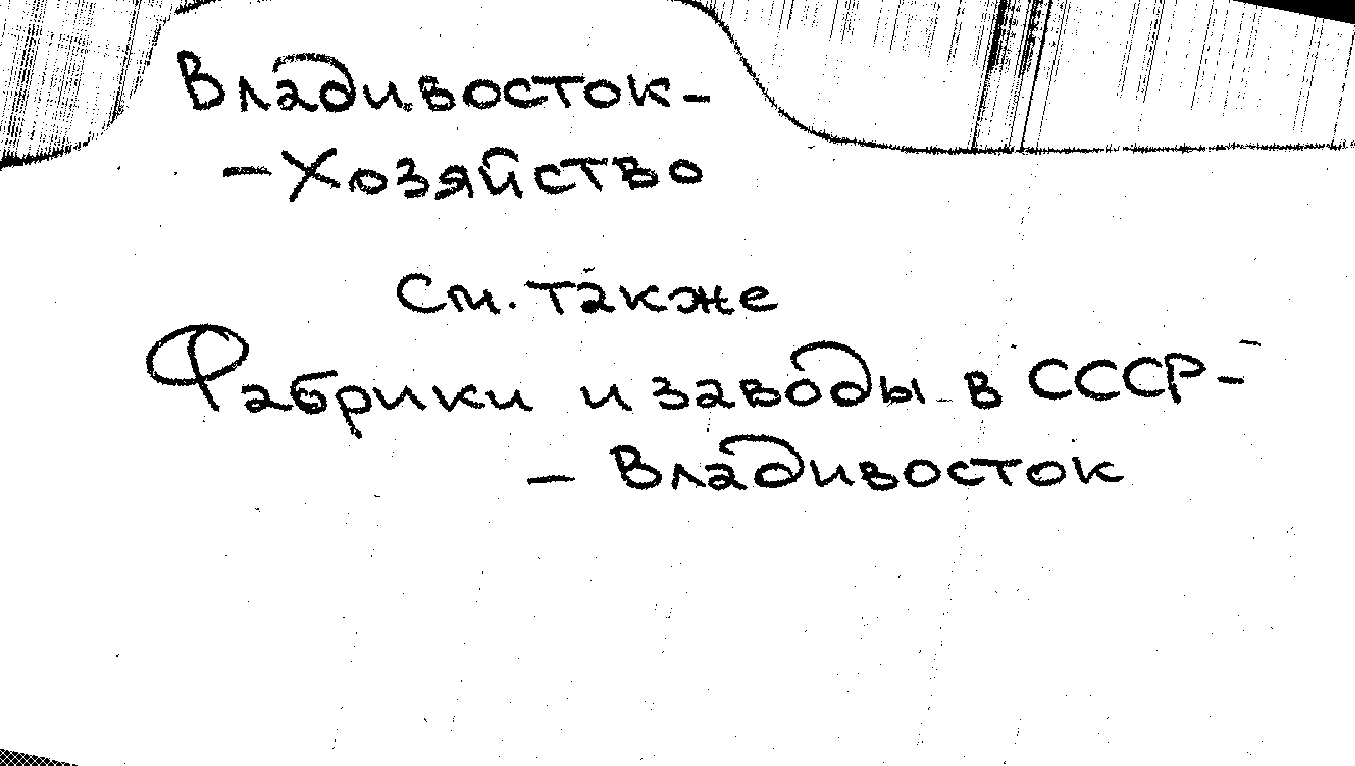 Владивосток-
-Хозяйство
См. также
Фабрики и заводы в СССР-
- Владивосток